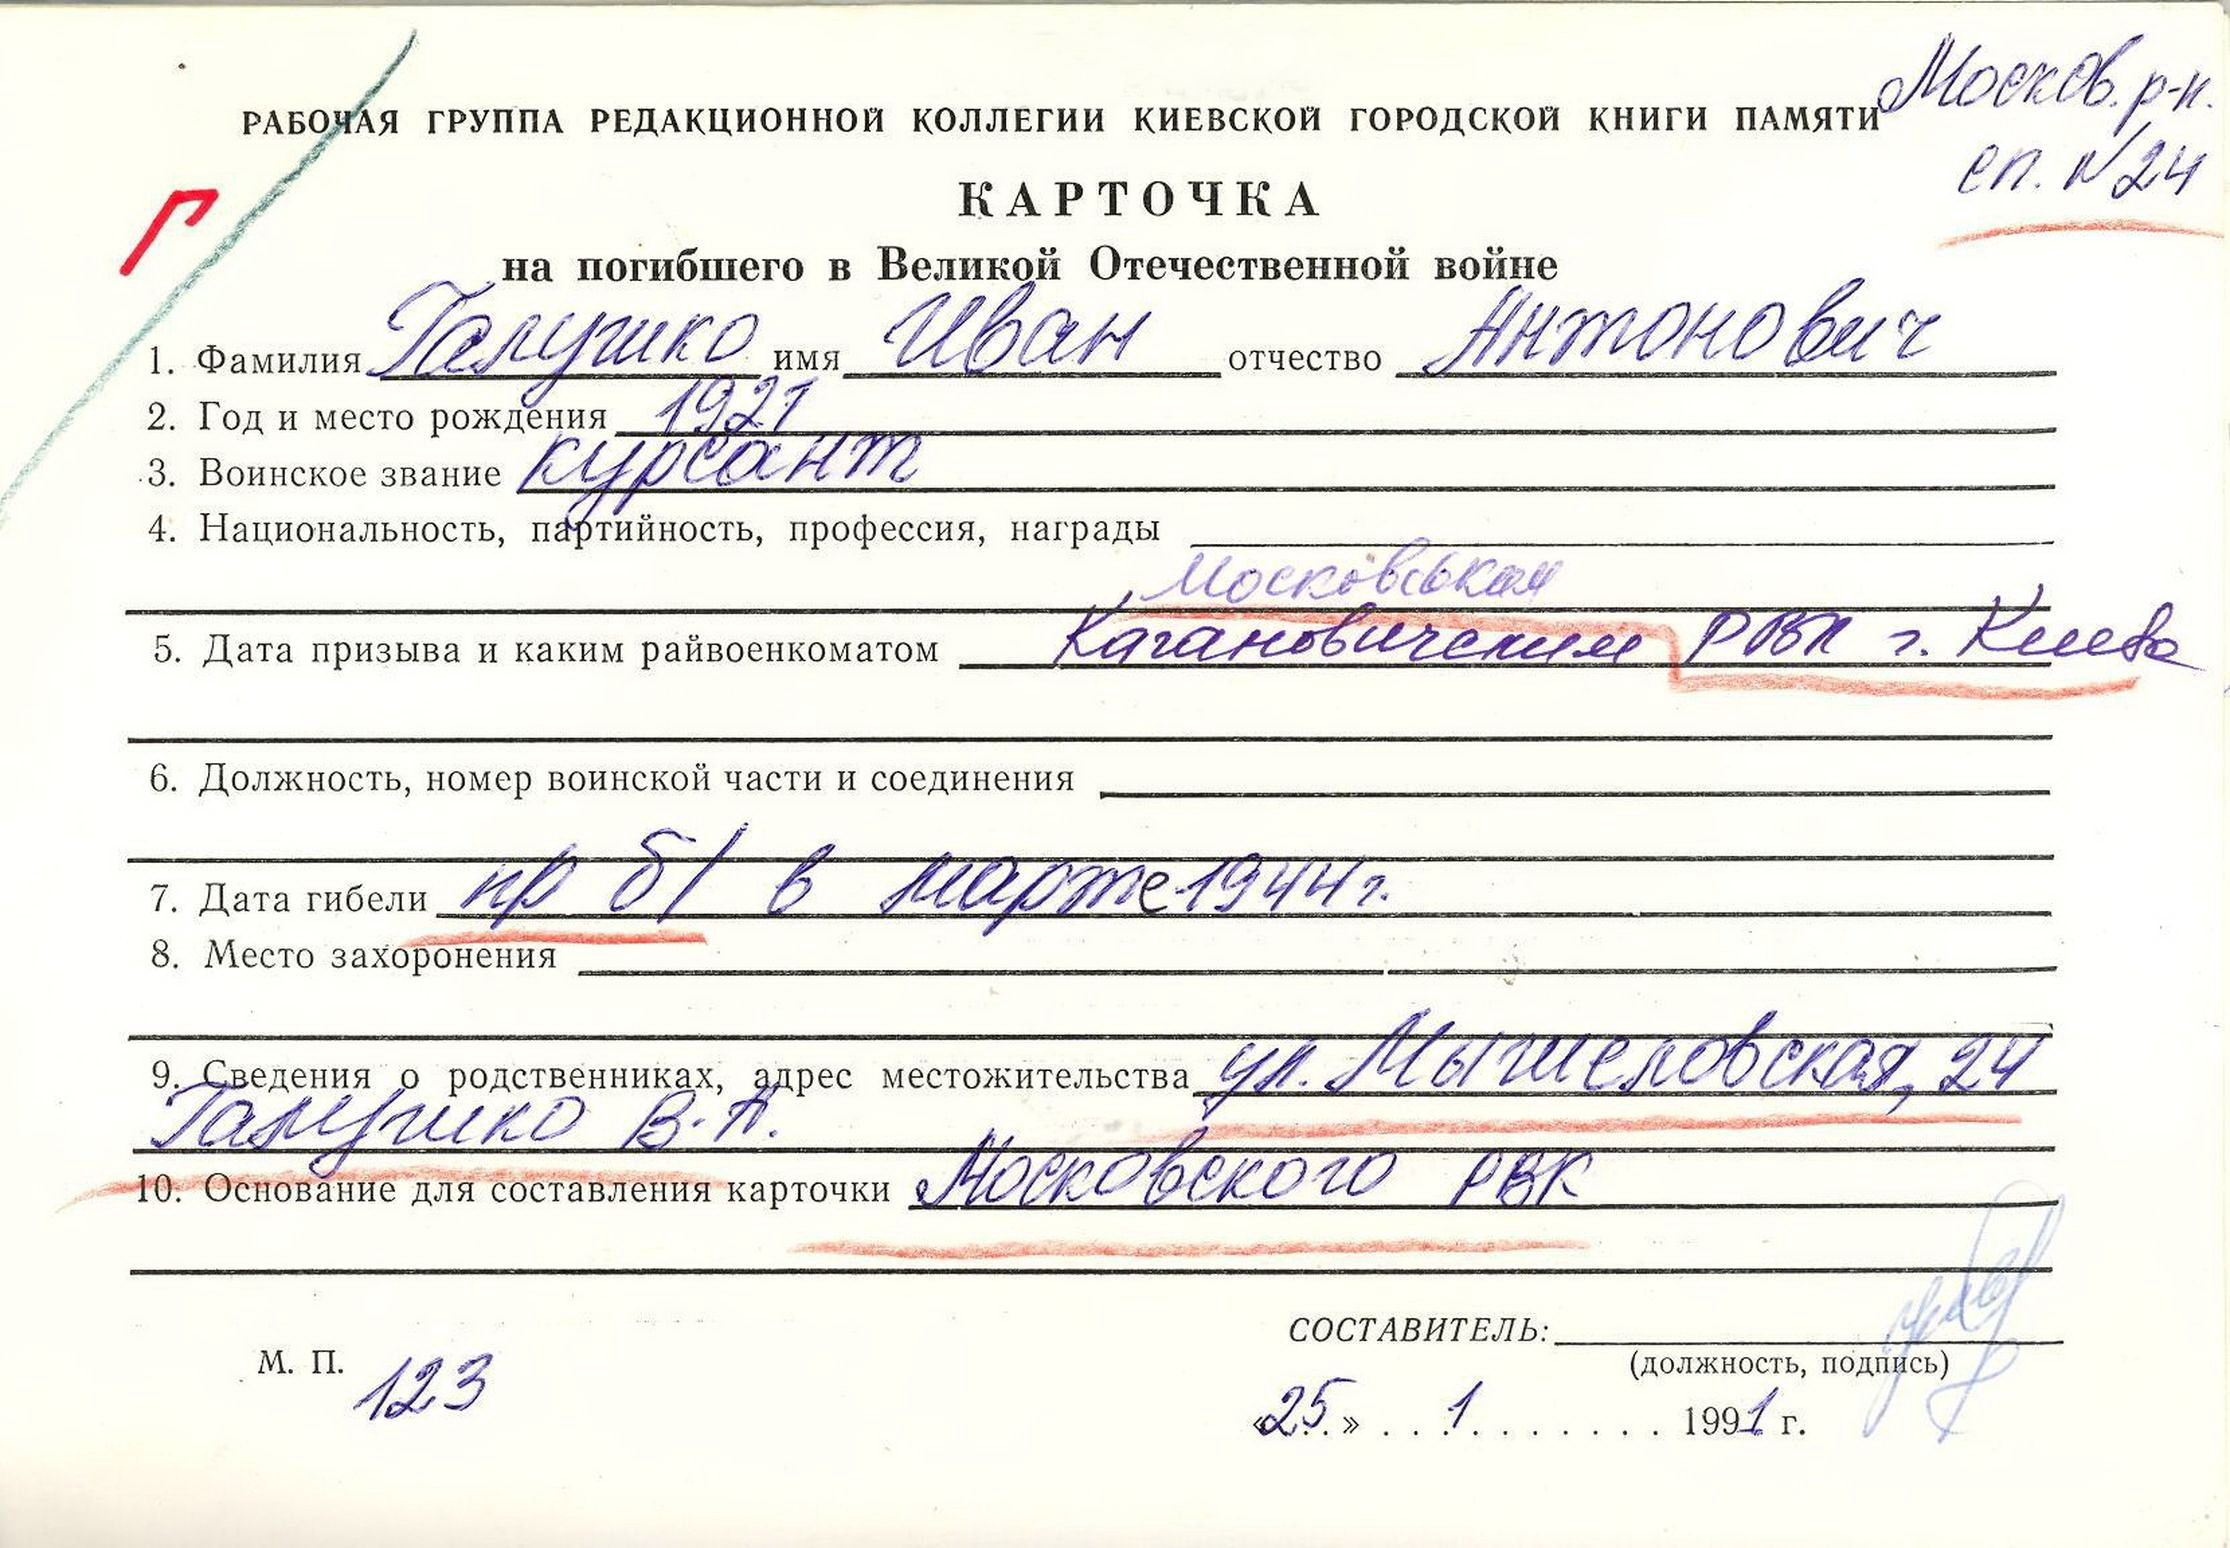 Москов. р-н.
РАБОЧАЯ ГРУППА РЕДАКЦИОННОЙ КОЛЛЕГИИ КИЕВСКОЙ ГОРОДСКОЙ КНИГИ ПАМЯТИ
сп. N24
Г
КАРТОЧКА
на погибшего в Великой Отечественной войне
1. Фамилия Галушко имя Иван отчество Антонович
2. Год и место рождения 1921
3. Воинское звание курсант
4. Национальность, партийность, профессия, награды
Московськая
5. Дата призыва и каким райвоенкоматом Кагановичским РВК г. Киева
6. Должность, номер воинской части и соединения
7. Дата гибели пр б/ в марте 1944 г.
8. Место захоронения
9. Сведения о родственниках, адрес местожительства ул. Мышеловская, 24
Галушко В. А.
10. Основание для составления карточки Московского РВК
СОСТАВИТЕЛЬ:
М. П. 123
(должность, подпись)
«25» . . . 1 . . . . . . . . 1991 г.